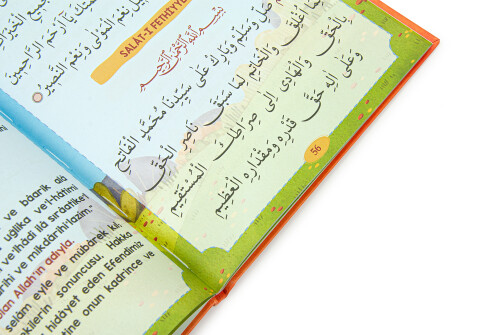 نِعْمَ الْمَوْلَى وَنِعْمَ النَّصِيرُ
SALÂT-I FETHİYYE
بِسْمِ اللهِ الرَّحْمٰنِ الرَّحِيمِ
صَلِّ وَسَلِّمْ وَبَارِكْ عَلَى سَيِّدِنَا مُحَمَّدٍ الْفَاتِحِ
لِمَا أُغْلِقَ وَالْخَاتِمِ لِمَا سَبَقَ نَاصِرِ الْحَقِّ
بِالْحَقِّ وَالْهَادِي إِلَى صِرَاطِكَ الْمُسْتَقِيمِ
وَعَلَى آلِهِ حَقَّ قَدْرِهِ وَمِقْدَارِهِ الْعَظِيمِ
56
ve bâarik alâ
uğlika ve'l-hâtimi
ve'lhâdî ilâ sırâatike
rihî ve mikdârihi'lazîm."
olan Allah'ın adıyla.
selâm eyle ve mübârek kıl.
kilerin sonuncusu, Hakka
hidâyet eden Efendimiz
tine onun kadrince ve